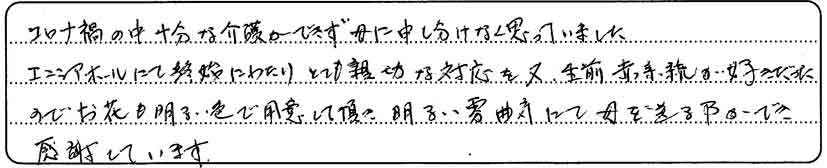 コロナ禍の中十分な介護ができず母に申し分けなく思っていました
エニシアホールにて終始にわたりとても親切な対応を又、生前赤系統が好きだった
のでお花も明るい色で用意して頂き明るい雰囲気にて母を送る事ができ
感謝しています